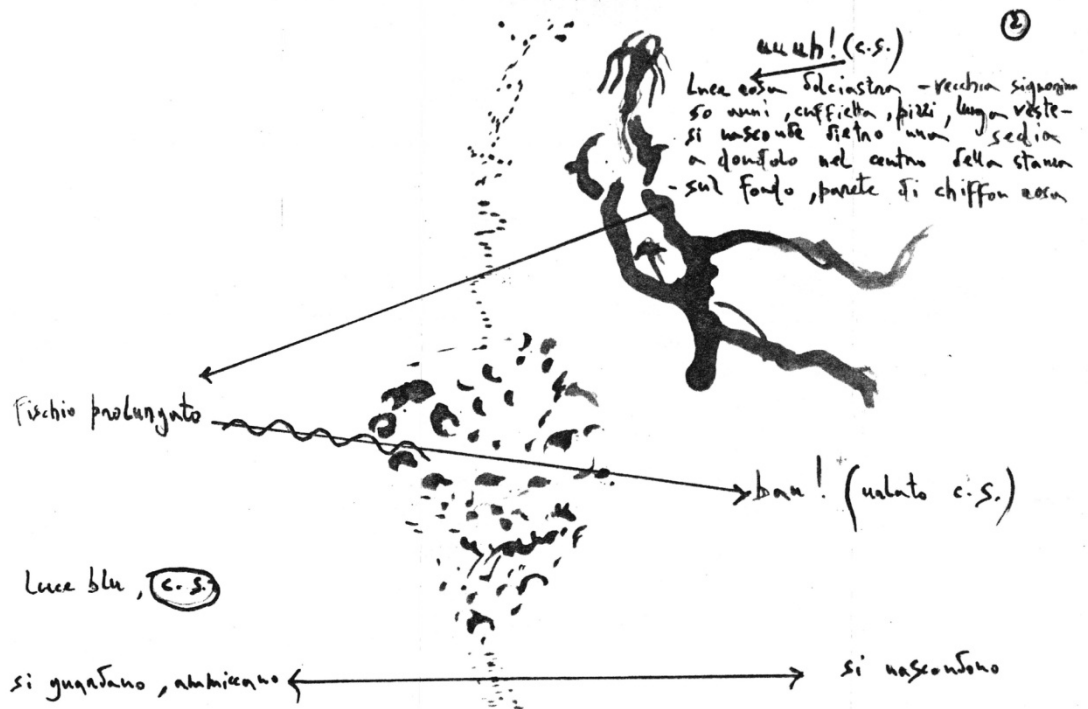 2
uuuh! (c.s.)
Luce rosa dolciastra - vecchia signorina
50 anni, cuffietta, pizzi, lunga veste -
si nasconde dietro una sedia
a dondolo nel centro della stanza
- sul fondo, parete di chiffon rosa
Fischio prolungato
bau! (urlato c.s.)
Luce blu, c.s.
si guardano, ammiccano
si nascondono